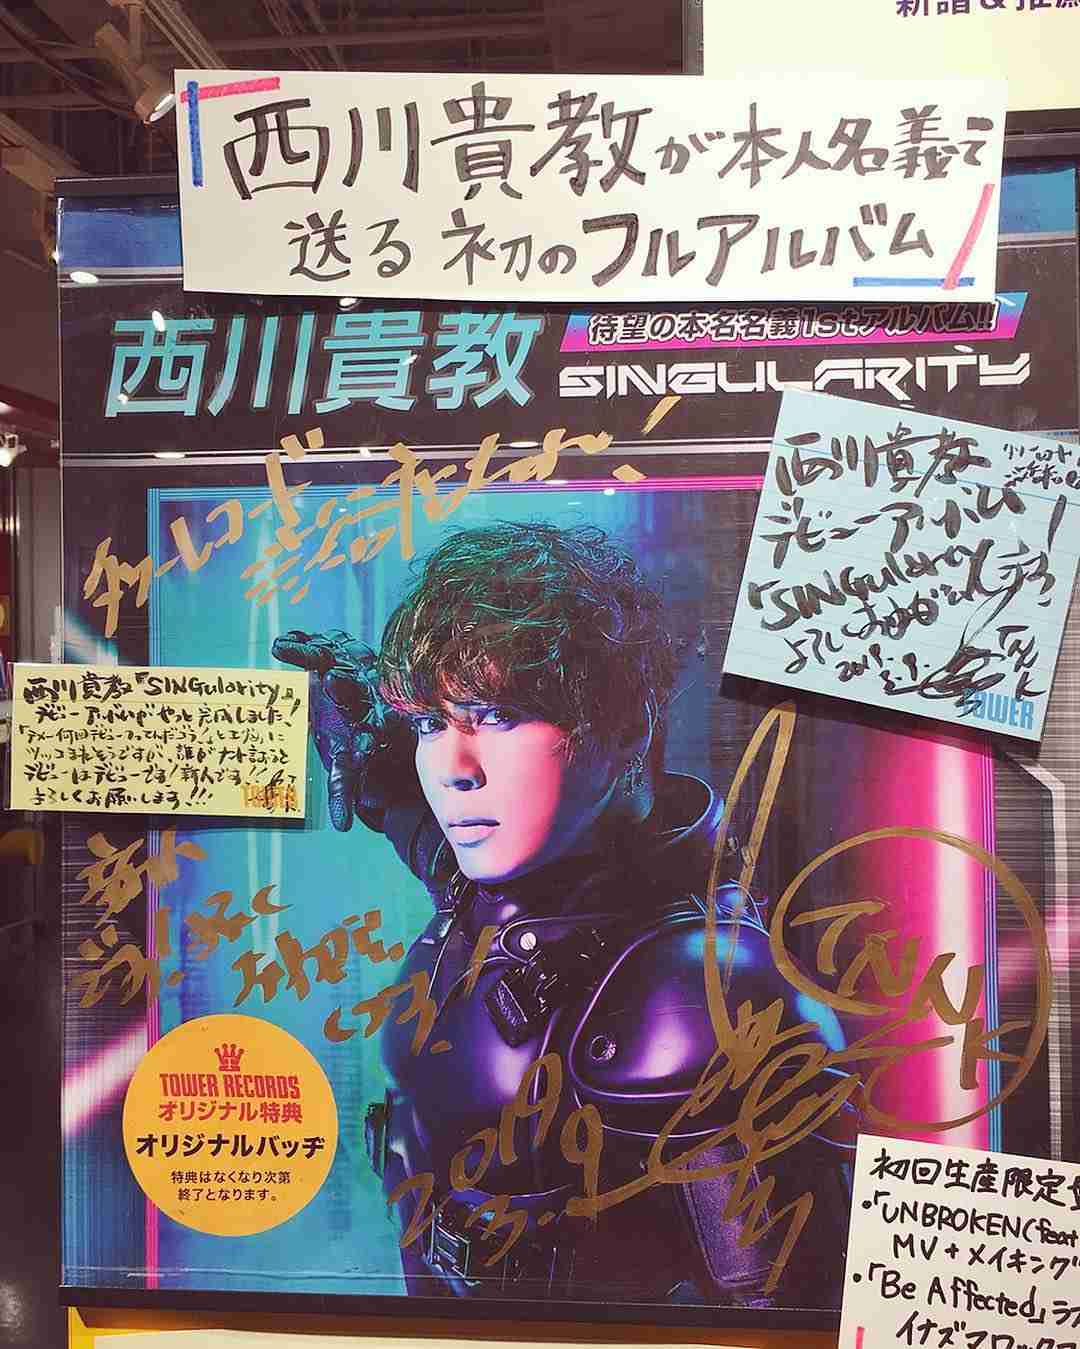 新譜&推薦
「西川貴教が本人名義で
送る初のフルアルバム」
西川貴教
待望の本名名義1stアルバム!!
SINGULARITY
タワーレコード
西川貴教
デビューアルバム
「SINGularity」
よろしくおねがいします
2019.3.9.
TOWER
西川貴教「SINGularity」
デビューアルバムがやっと完成しました!
「オメー何回デビューすってんだコラ!」と
ツッコまれそうですが、誰がナント言おうと
デビューはデビューです!新人です!!
よろしくお願いします!!!
TOWER
TOWER RECORDS
オリジナル特典
オリジナルバッヂ
特典はなくなり次第
終了となります。
2019
3.9
TNNK
初回生産限定
・「UNBROKEN(feat
MV+メイキング
・「Be Affected」ラ
イナズマロック